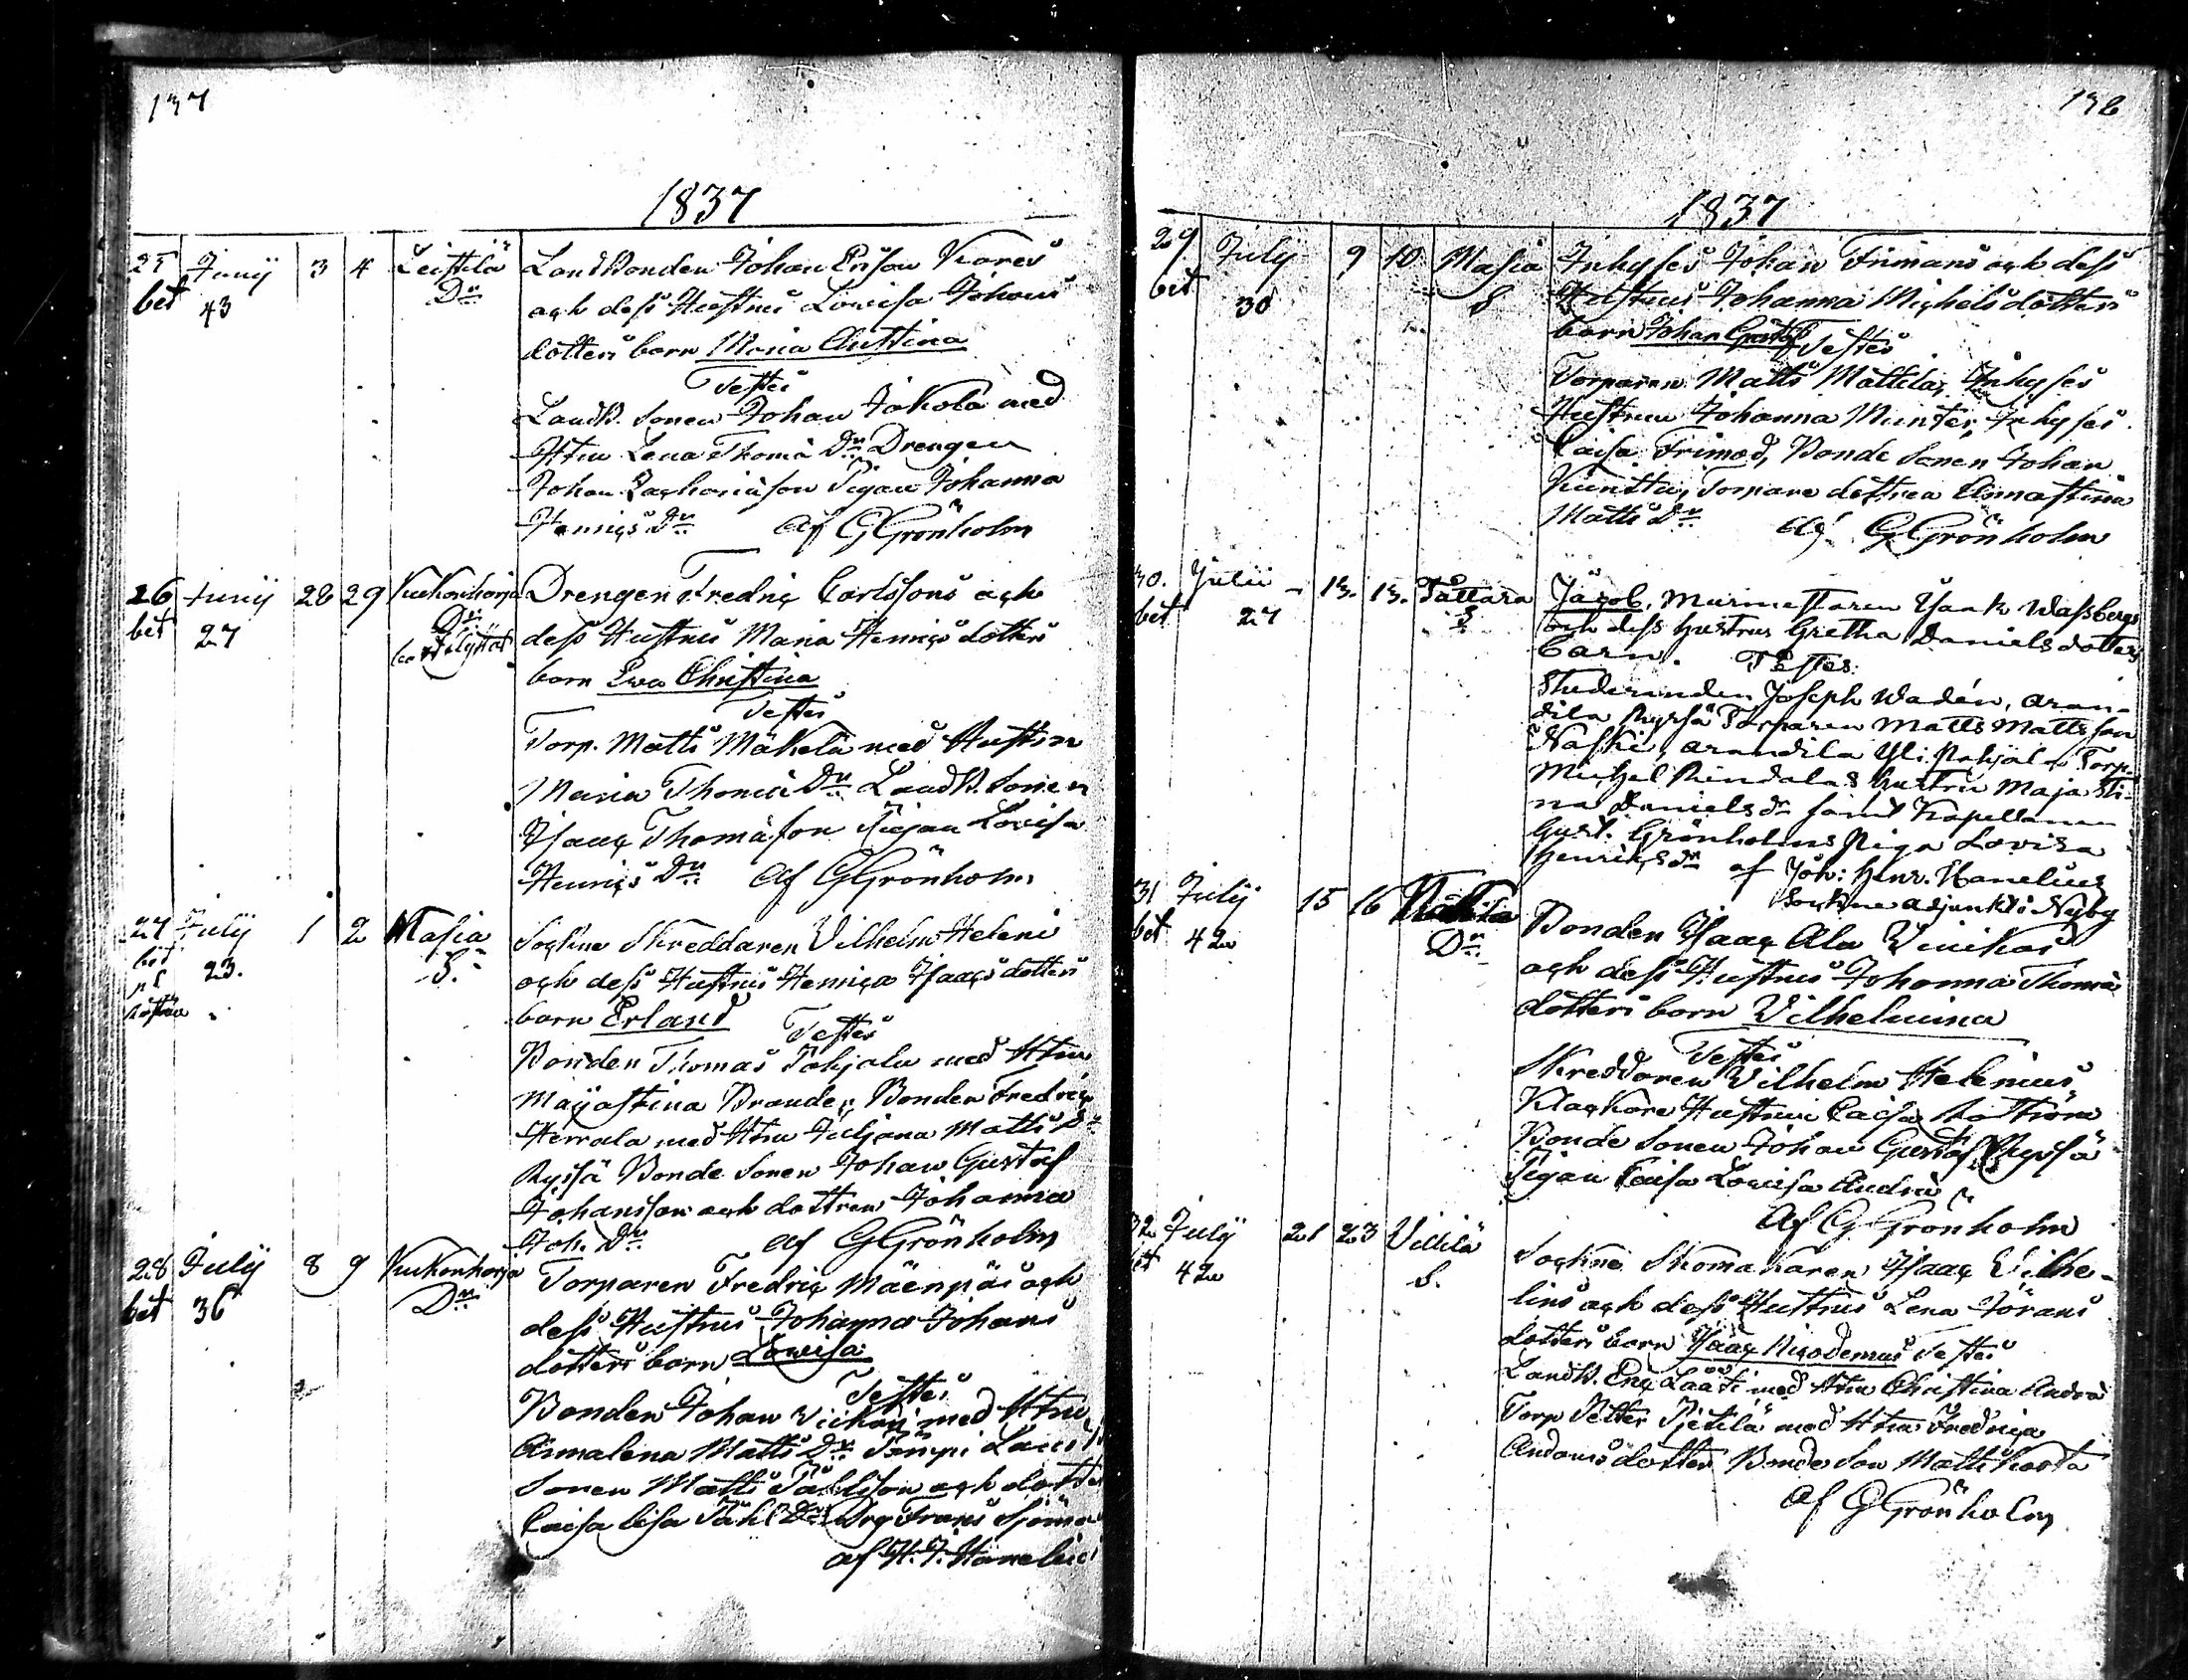 137
1837
25 Junij 3 4 Leistilä Landbonden Johan Ersson Kares
bet 43 Dr och dess Hustrus Lowisa Johans
dotters barn Maria Christina
Testes
Landb. Sonen Johan Jokola med
Htru Lena Thomä Dr Drengen
Johan Zachariäson Pigan Johanna
Henrics Dr af G Grönholm
26 Junij 28 29 Kuckonharja Drengen Fredric Carlssons och
bet 27 Dr dess Hustrus Maria Henrics dotters
barn Ewa Christina
Testes
Torp. Matts Mäkelä med Hustrun
Maria Thomä Dr Landb. Sonen
Isaac Thomäson Pigan Lovisa
Henrics Dr af G Grönholm
27 July 1 2 Masia Sockne Skreddaren Vilhelm Heleni
bet 23. S. och dess Hustrus Henrica Isaacs dotters
barn Erland Testes
Bonden Thomas Pohjala med Htru
Majastina Brander, Bonden Fredric
Herrala med Htru Juljana Matts Dr
Ryssä Bonde Sonen Johan Gustaf
Johansson och dottren Johanna
Joh. Dr af G Grönholm
28 July 8 9 Kuckonharja Torparen Fredric Mäenpäs och
bet 36 Dr dess Hustrus Johanna Johans
dotters barn Lowisa
Testes
Bonden Johan Viikari med Htru
Annalena Matts Dr
Sonen Matts och
Caisa Lisa Dr Drg Frans
af H. J. Hanelius
1837
29 July 9 10 Masia Inhyses Johan Frimans och dess
bet 30 S Hustrus Johanna Michelsdotters
barn Johan Gustaf Testes
Torparen Matts Mattila, Inhyses
Hustrun Johanna Munter, Inhyses
Caisa Friman, Bonde Sonen Johan
Torpare dottren Annastina
Matts Dr af G Grönholm
30. Julii 13. 13. Tåttara Jacob, Murmestaren Isaak Wassbergs
bet 27 S och dess hustrus Gretha Daniels dotters
barn. Testes:
Studeranden Joseph Wadén, Aran-
dila Ryssä Torparen Matts Mattsson
Naski, Arandila Yli Pohjala Torp.
Michel Rindalas hustru Maja Sti-
na Daniels dr samt Kapellanen
Gust. Grönholms Piga Lovisa
Henrics dr af Joh: Henr. Hanelius
Sockne adjunkt i Nykyrko
31 July 15 16 Bonden Isaac Ala Winikas
bet 42 Dr och dess Hustrus Johanna Thomä
dotters barn Vilhelmina
Testes
Skreddaren Vilhelm Helenius
Klockare Hustrun Caisa
Bonde Sonen Johan Gustaf Ryssä
Pigan Caisa Lowisa Andrä
Af G Grönholm
32 July 21 23 Villilä Sockne Skomakaren Isaac Vilhe-
bet 42 S. lins och dess Hustrus Lena Jörans
dotters barn Isaac Nicodemus Testes
Landb. Eric Lååti med Htru Christina Andrä
Torp Petter Pietilä med Htru Fredrica
Andersdotter Bonde Son Matts
af G Grönholm